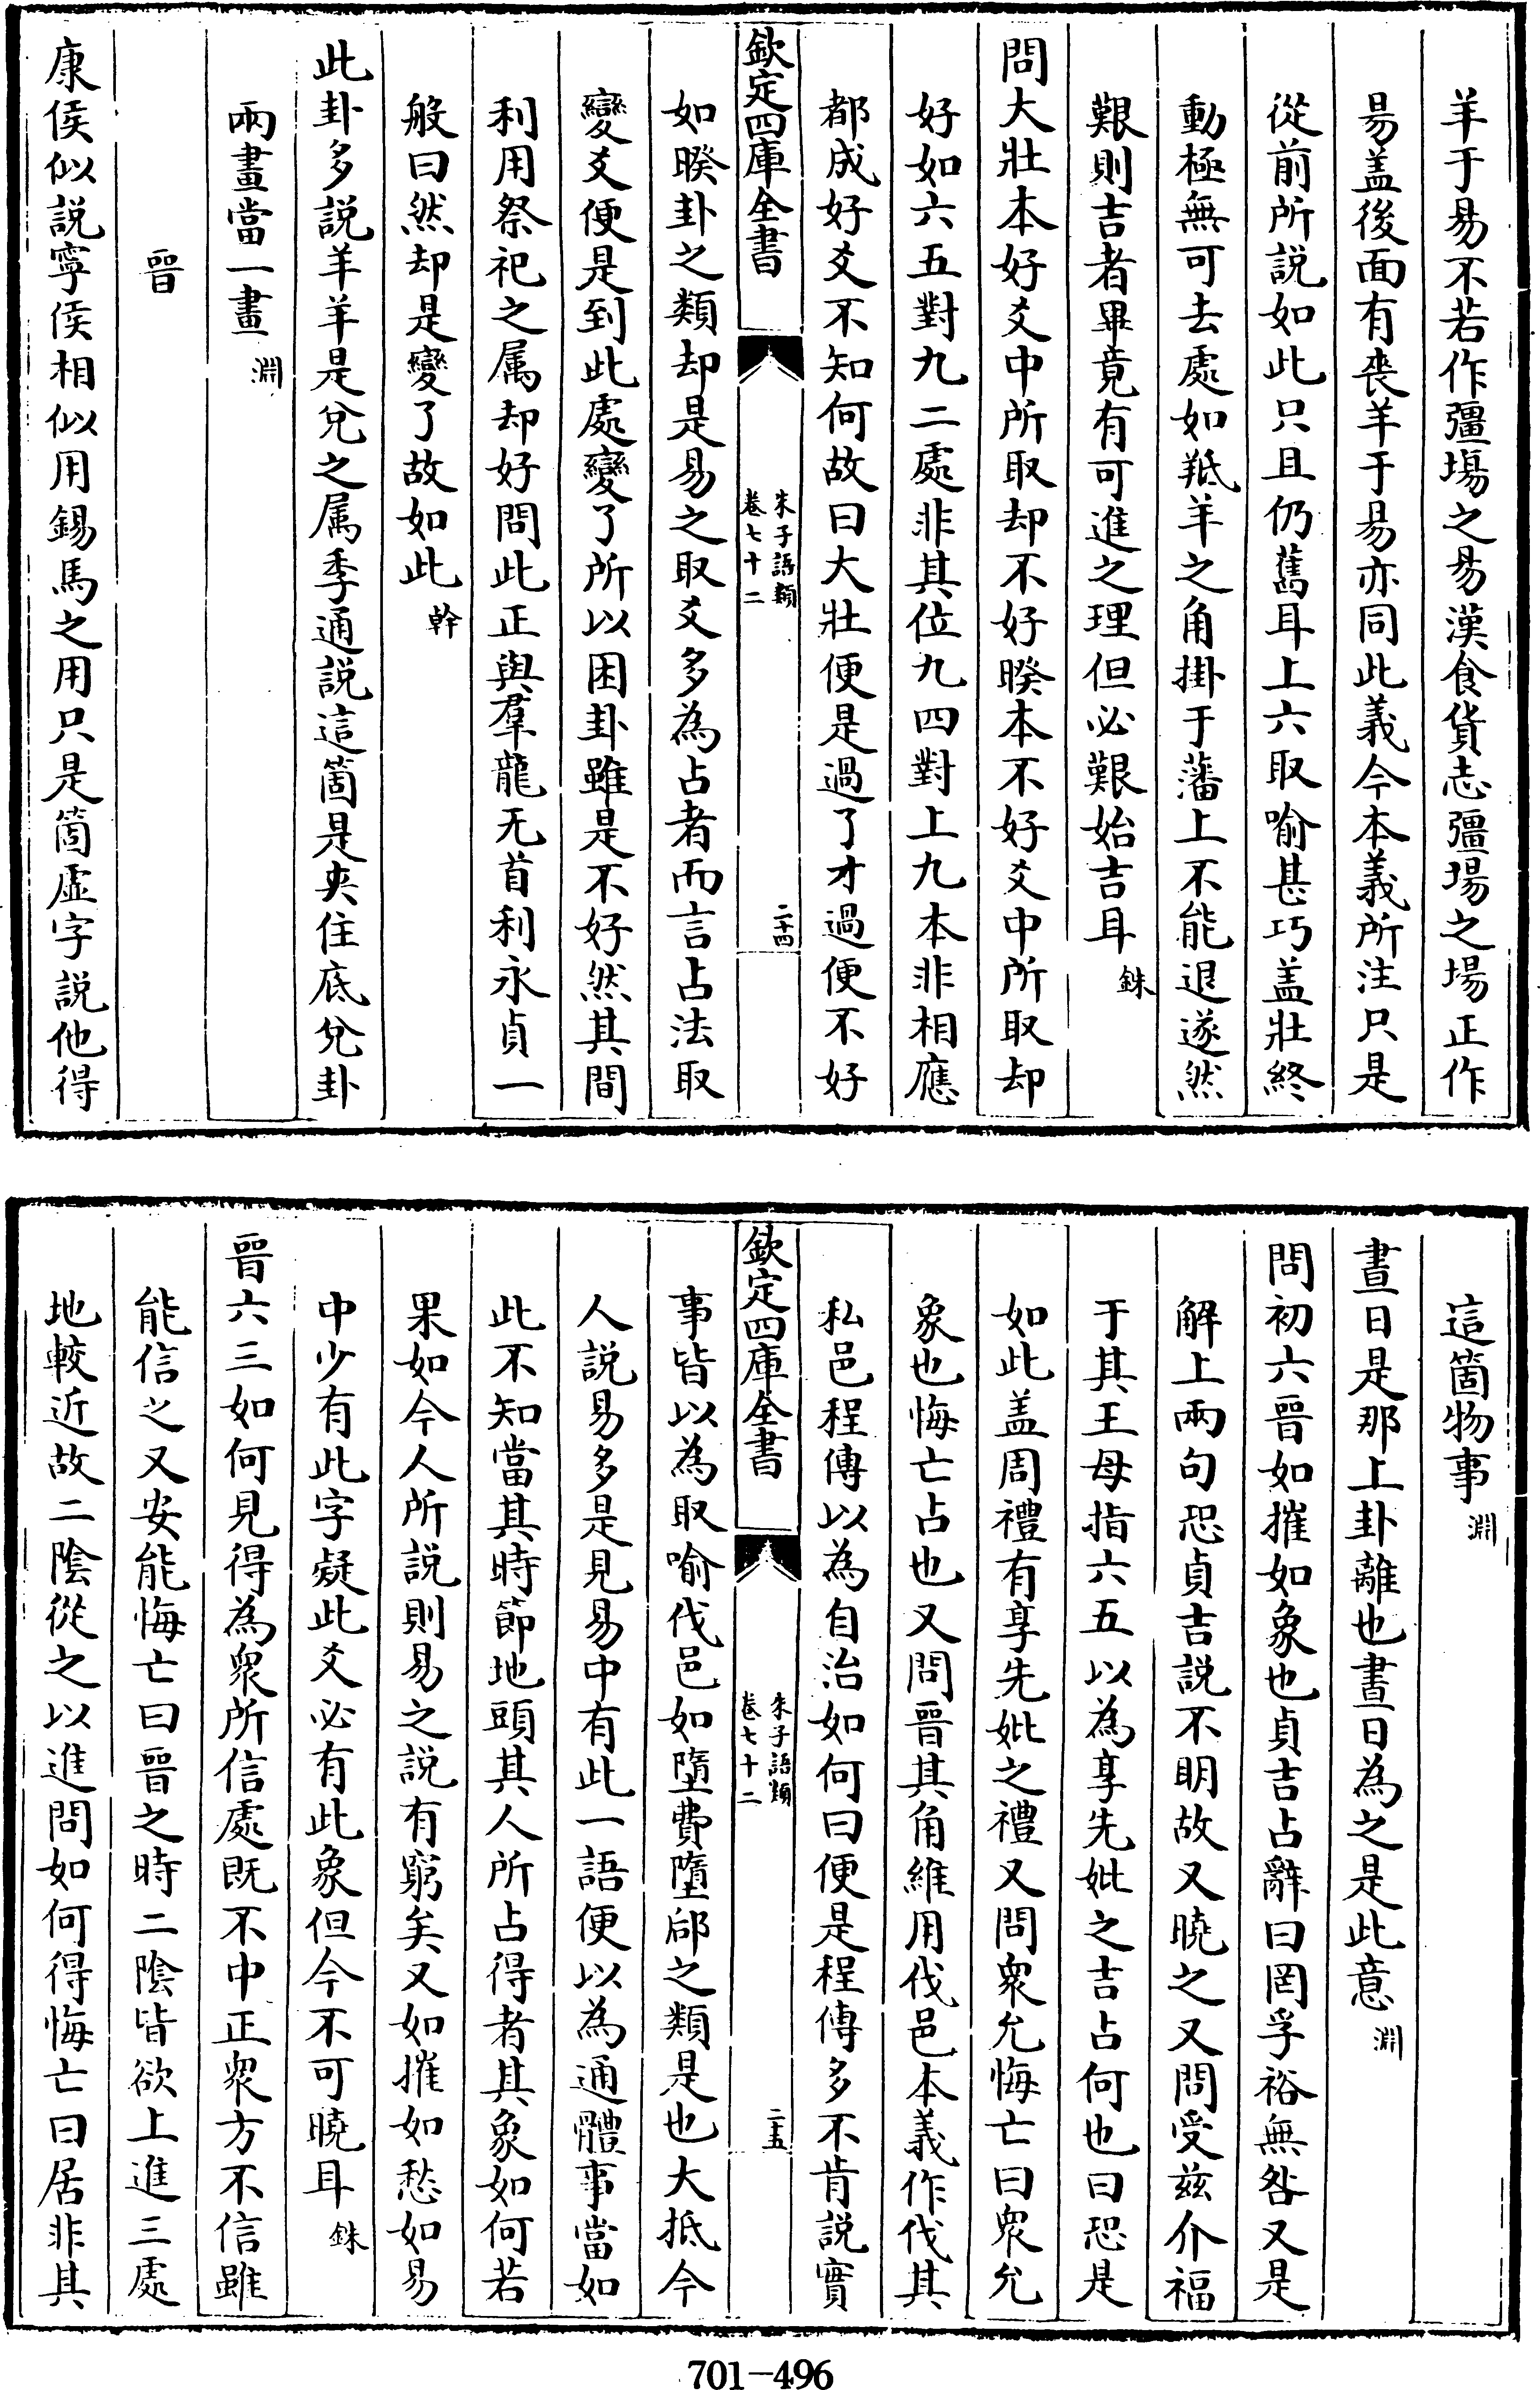 羊于易不若作疆埸之易漢食貨志疆埸之埸正作
易盖後面有喪羊于易亦同此義今本義所注只是
從前所説如此只且仍舊耳上六取喻甚巧盖壯終
動極無可去處如羝羊之角掛于藩上不能退遂然
艱則吉者畢竟有可進之理但必艱始吉耳銖
問大壯本好爻中所取却不好睽本不好爻中所取却
好如六五對九二處非其位九四對上九本非相應
都成好爻不知何故曰大壯便是過了才過便不好
欽定四庫全書
朱子語類
卷七十二
二十四
如睽卦之類却是易之取爻多為占者而言占法取
變爻便是到此處變了所以困卦雖是不好然其間
利用祭祀之属却好問此正與羣龍无首利永貞一
般曰然却是變了故如此幹
此卦多説羊羊是兌之属季通説這箇是夾住底兌卦
兩畫當一畫淵
晉
康侯似説寧侯相似用錫馬之用只是箇虚字説他得
這箇物事淵
晝日是那上卦離也晝日為之是此意淵
問初六晉如摧如象也貞吉占辭曰罔孚裕無咎又是
解上兩句恐貞吉説不明故又曉之又問受兹介福
于其王母指六五以為享先妣之吉占何也曰恐是
如此盖周禮有享先妣之禮又問衆允悔亡曰衆允
象也悔亡占也又問晉其角維用伐邑本義作伐其
私邑程傳以為自治如何曰便是程傳多不肯説實
欽定四庫全書
朱子語類
卷七十二
二十五
事皆以為取喻伐邑如墮費墮郈之類是也大抵今
人説易多是見易中有此一語便以為通體事當如
此不知當其時節地頭其人所占得者其象如何若
果如今人所説則易之説有窮矣又如摧如愁如易
中少有此字疑此爻必有此象但今不可曉耳銖
晉六三如何見得為衆所信處既不中正衆方不信雖
能信之又安能悔亡曰晉之時二陰皆欲上進三處
地較近故二陰從之以進問如何得悔亡曰居非其
701-496